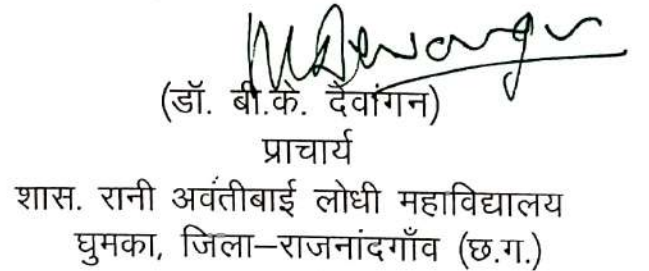 (डॉ. बी.के. दैवांगन)
प्राचार्य
शास. रानी अवंतीबाई लोधी महाविद्यालय
घुमका, जिला–राजनांदगाँव (छ.ग.)